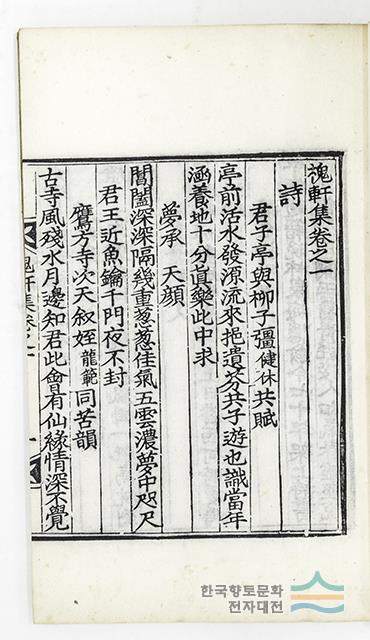 槐軒集卷之一
詩
君子亭與柳子彊健休共賦
亭前活水發源流來挹遺芬共子遊也識當年
涵養地十分眞樂此中求
夢承 天顔
閶闔深深隔幾重葱葱佳氣五雲濃夢中咫尺
君王近魚鑰千門夜不封
鷹方寺次天叙姪龍範同苦韻
古寺風殘水月邊知君此會有仙緣情深不覺
槐軒集卷之一
한국향토문화
전자대전